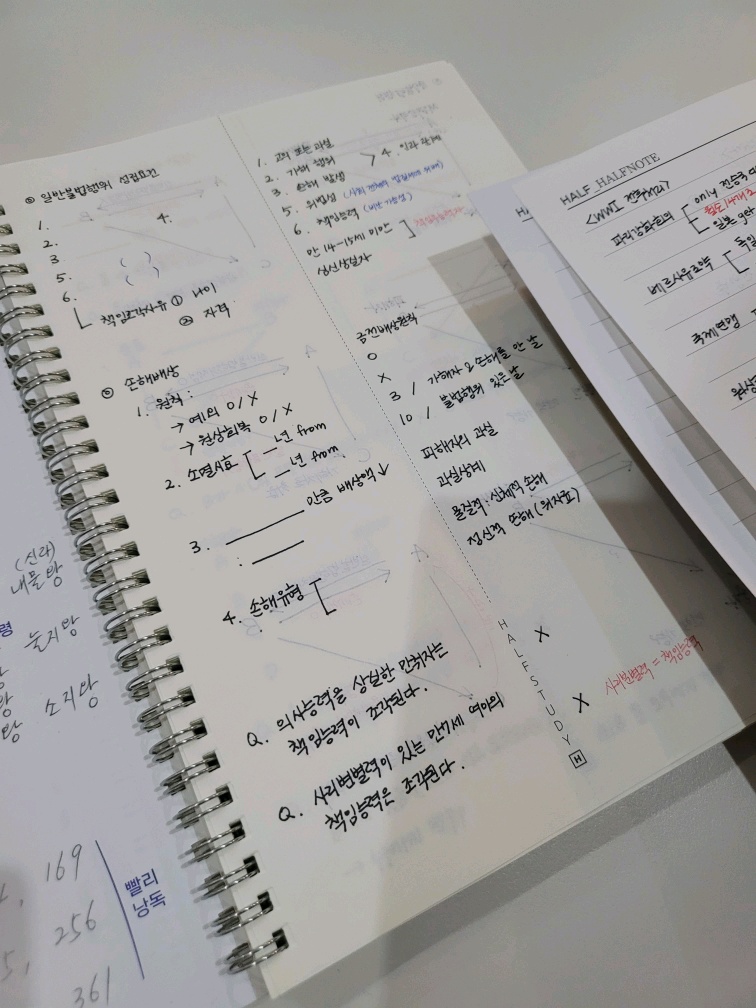 ⑤ 일반불법행위 성립요건
1.
2.
4.
3
5. ( )
6. ( )
책임조각사유 ① 나이
② 자격
⑥ 손해배상
1. 원칙 :
→ 예외 O / X
→ 원상회복 O / X
2. 소멸시효 [ _년 from
_년 from
3. ______ 만큼 배상액↓
: ____
4. 손해유형 [
Q. 의사능력을 상실한 만취자는
책임능력이 조각된다.
Q. 사리변별력이 있는 만7세 여아의
책임능력은 조각된다.
1. 고의 또는 과실
2. 가해 행위
> 4. 인과 관계
3. 손해 발생
5. 위법성
6. 책임능력
만 14-15세 미만
심신상실자
금전배상원칙
O
X
3 / 가해자 & 손해를 안 날
10 / 불법행위 있은 날
피해자의 과실
과실상계
물질적 : 신체적 손해
정신적 손해 (위자료)
X
X
사리변별력 = 책임능력
HALF STUDY H
HALF_HALFNOTE
<WWI 전후처리>
파리강화회의
only 전승국
일본
베르사유조약
독일
국제연맹
(신라)
내물왕
눌지왕
소지왕
169
256
361
빨리
낭독